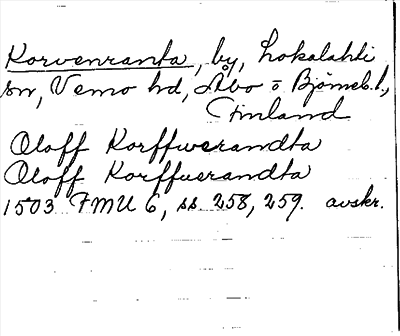 Korvenranta, by, Lokalahti
sn, Vemo hd, Åbo o Björneb. l.,
Finland
Oloff Korffwerandta
Oloff Korffuerandta
1503 FMU 6, ss 258, 259. avskr.